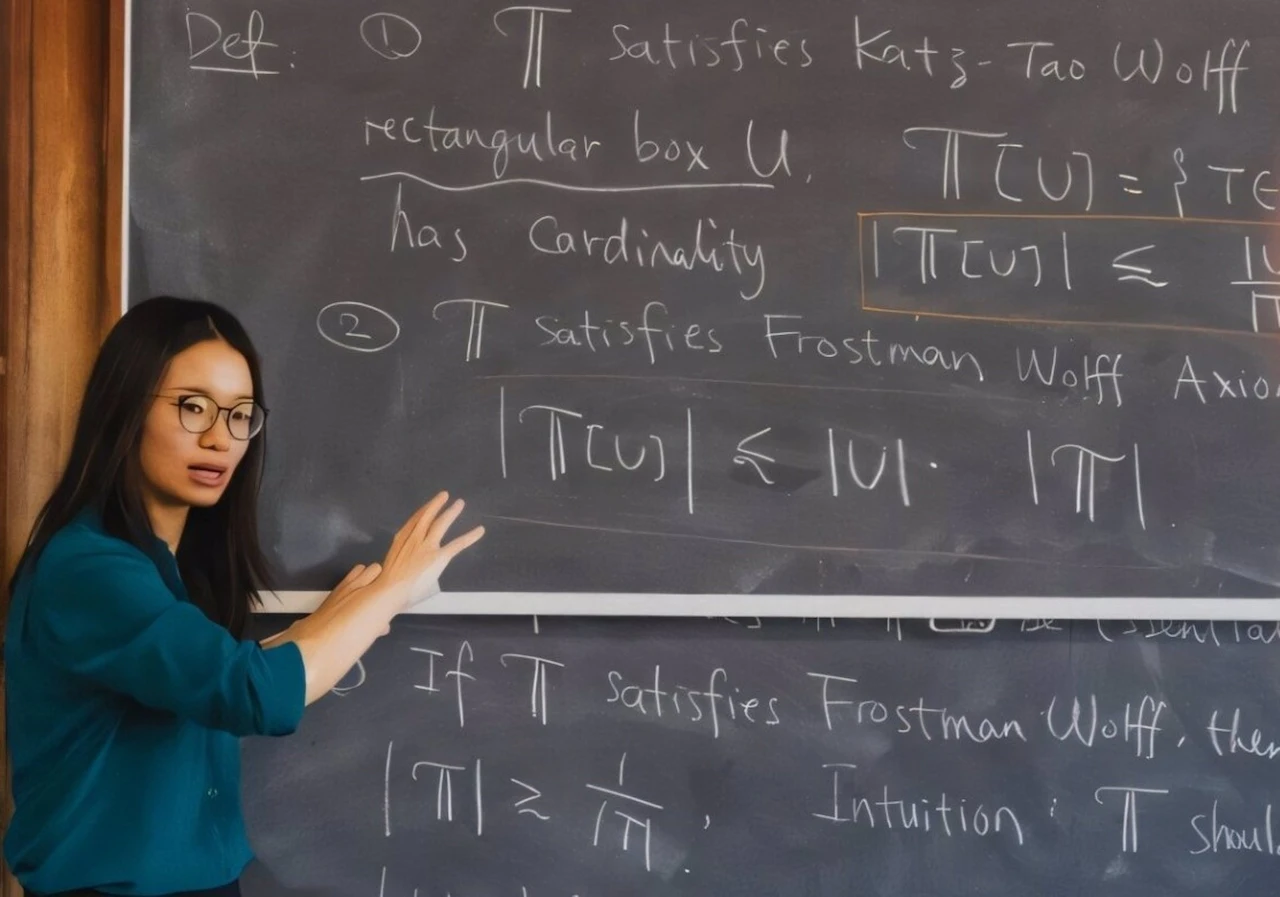 Def: ① 𝕋 satisfies Katz-Tao Wolff
rectangular box U, 𝕋[U] = { T ∈
has Cardinality |𝕋[U]| ≲ |U
② 𝕋 satisfies Frostman Wolff Axio
|𝕋[U]| ≲ |U|· |𝕋|.
If 𝕋 satisfies Frostman Wolff, then
|𝕋| ≳ 1/|T|, Intuition: 𝕋 shoul